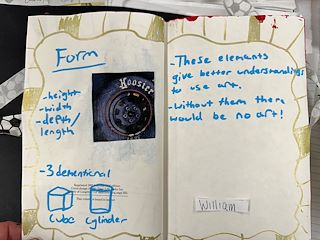 Form
Hoosier
-height
-width
-depth/
length
-3 dementional
cube cylinder
-These elements
give better understandings
to use art.
-Without them there
would be no art!
William